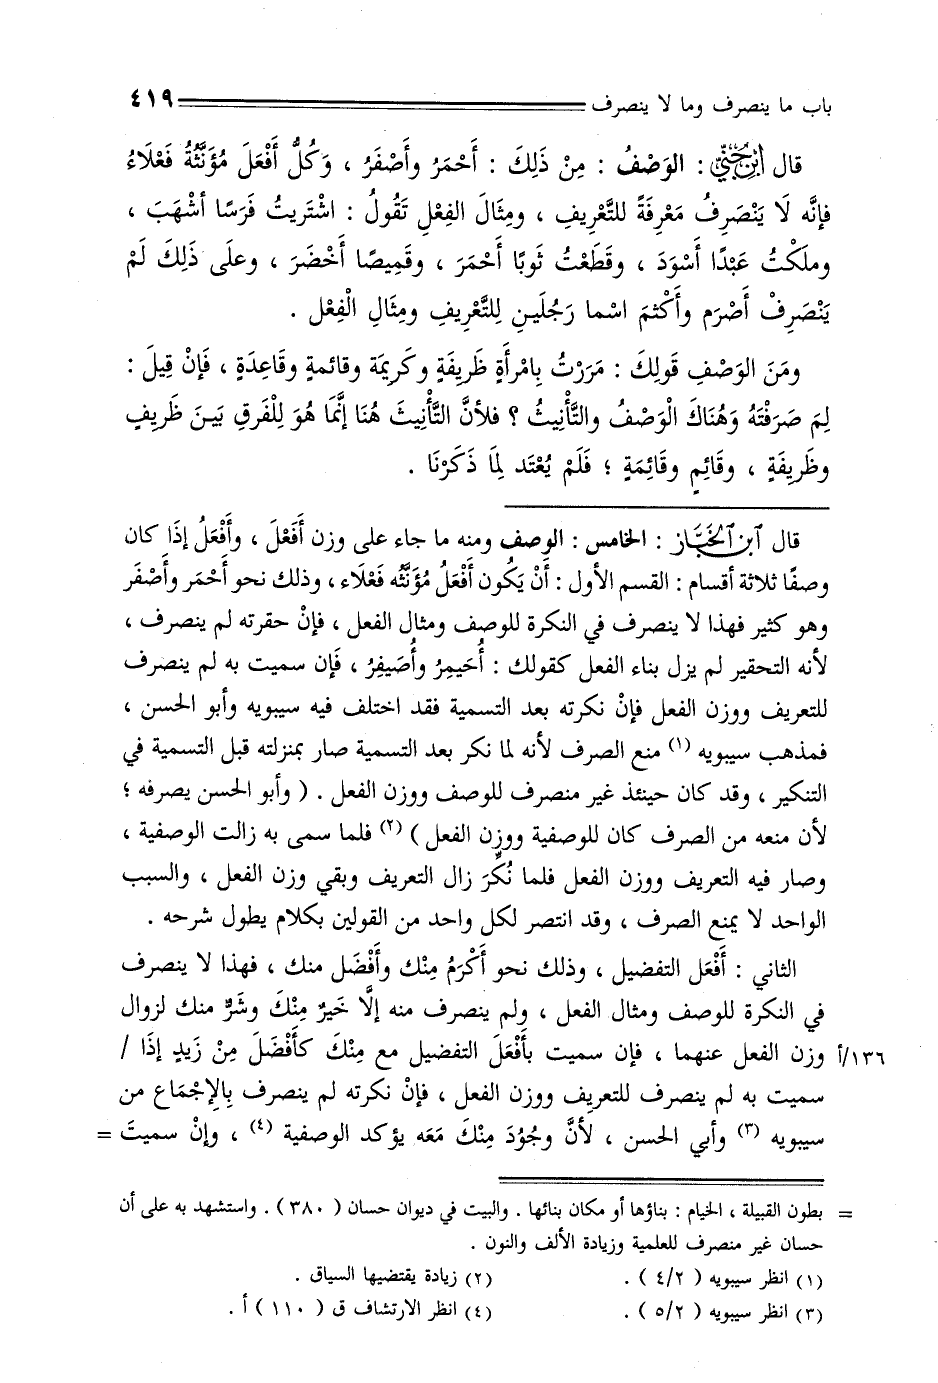 باب ما ينصرف وما لا ينصرف ٤١٩
قال ابْنُ جِنِّي : الوَصْفُ : مِنْ ذَلِكَ : أَحْمَرُ وأَصْفَرُ ، وَكُلُّ أَفْعَلَ مُؤَنَّثُهُ فَعْلَاءُ
فإنَّه لَا يَنْصَرِفُ مَعْرِفَةً للتَّعْرِيفِ ، ومِثَالَ الفِعْلِ تَقُولُ : اشْتَرِيتُ فَرَسًا أشْهَبَ ،
وملَكْتُ عَبْدًا أَسْوَدَ ، وقَطَعْتُ ثَوبًا أَحْمَرَ ، وقَمِيصًا أَخْضَرَ ، وعلَى ذَلِكَ لَمْ
يَنْصَرِفْ أَصْرَم وأَكْثمَ اسْما رَجُلَينِ لِلتَّعْرِيفِ ومِثَالِ الْفِعْل .
ومَنَ الوَصْفِ قَولِكَ : مَرَرْتُ بِامْرأَةٍ ظَرِيفَةٍ وكَرِيمَة وقائمةٍ وقَاعِدَةٍ ، فَإنْ قِيلَ :
لِمَ صَرَفْتَهُ وَهُنَاكَ الْوَصْفُ والتَّأْنِيثُ ؟ فلأنَّ التَّأْنِيثَ هُنَا إنَّمَا هُوَ لِلْفَرقِ بَينَ ظَرِيفٍ
وظَرِيفَةٍ ، وقَائِمٍ وقَائِمَةٍ ؛ فَلَمْ يُعْتَد لِمَا ذَكَرْنَا .
قال ابن الخَبَّاز : الخامس : الوصف ومنه ما جاء على وزن أَفْعَلَ ، وأَفْعَلُ إذَا كان
وصفًا ثلاثة أقسام : القسم الأول : أَنْ يَكُون أَفْعَلُ مُؤَنَّثُه فَعْلَاء ، وذلك نحو أَحْمَر وأَصْفَر
وهو كثير فهذا لا ينصرف في النكرة للوصف ومثال الفعل ، فإنْ حقرته لم ينصرف ،
لأنه التحقير لم يزل بناء الفعل كقولك : أُحَيمِرُ وأُصَيفِرُ ، فَإن سميت به لم ينصرف
للتعريف ووزن الفعل فإنْ نكرته بعد التسمية فقد اختلف فيه سيبويه وأبو الحسن ،
فمذهب سيبويه (١) منع الصرف لأنه لما نكر بعد التسمية صار بمنزلته قبل التسمية في
التنكير ، وقد كان حينئذ غير منصرف للوصف ووزن الفعل . ( وأبو الحسن يصرفه ؛
لأن منعه من الصرف كان للوصفية ووزن الفعل ) (٢) فلما سمى به زالت الوصفية ،
وصار فيه التعريف ووزن الفعل فلما نُكِّرَ زال التعريف وبقي وزن الفعل ، والسبب
الواحد لا يمنع الصرف ، وقد انتصر لكل واحد من القولين بكلام يطول شرحه .
الثاني : أَفْعَل التفضيل ، وذلك نحو أَكْرَمُ مِنْك وأَفْضَل منك ، فهذا لا ينصرف
في النكرة للوصف ومثال الفعل ، ولم ينصرف منه إلَّا خَيرٌ مِنْكَ وشَرٌّ منك لزوال
١٣٦/أ وزن الفعل عنهما ، فإن سميت بأَفْعَلَ التفضيل مع مِنْكَ كَأَفْضَلَ مِنْ زَيدٍ إذَا /
سميت به لم ينصرف للتعريف ووزن الفعل ، فإنْ نكرته لم ينصرف بِالإجْمَاع من
سيبويه (٣) وأبي الحسن ، لأنَّ وجُوْدَ مِنْكَ مَعَه يؤكد الوصفية (٤) ، وإنْ سميتَ =
= بطون القبيلة ، الخيام : بناؤها أو مكان بنائها . والبيت في ديوان حسان ( ٣٨٠ ) . واستشهد به على أن
حسان غير منصرف للعلمية وزيادة الألف والنون .
(١) انظر سيبويه ( ٤/٢ ) . (٢) زيادة يقتضيها السياق .
(٣) انظر سيبويه ( ٥/٢ ) . (٤) انظر الارتشاف ق ( ١١٠ ) أ .